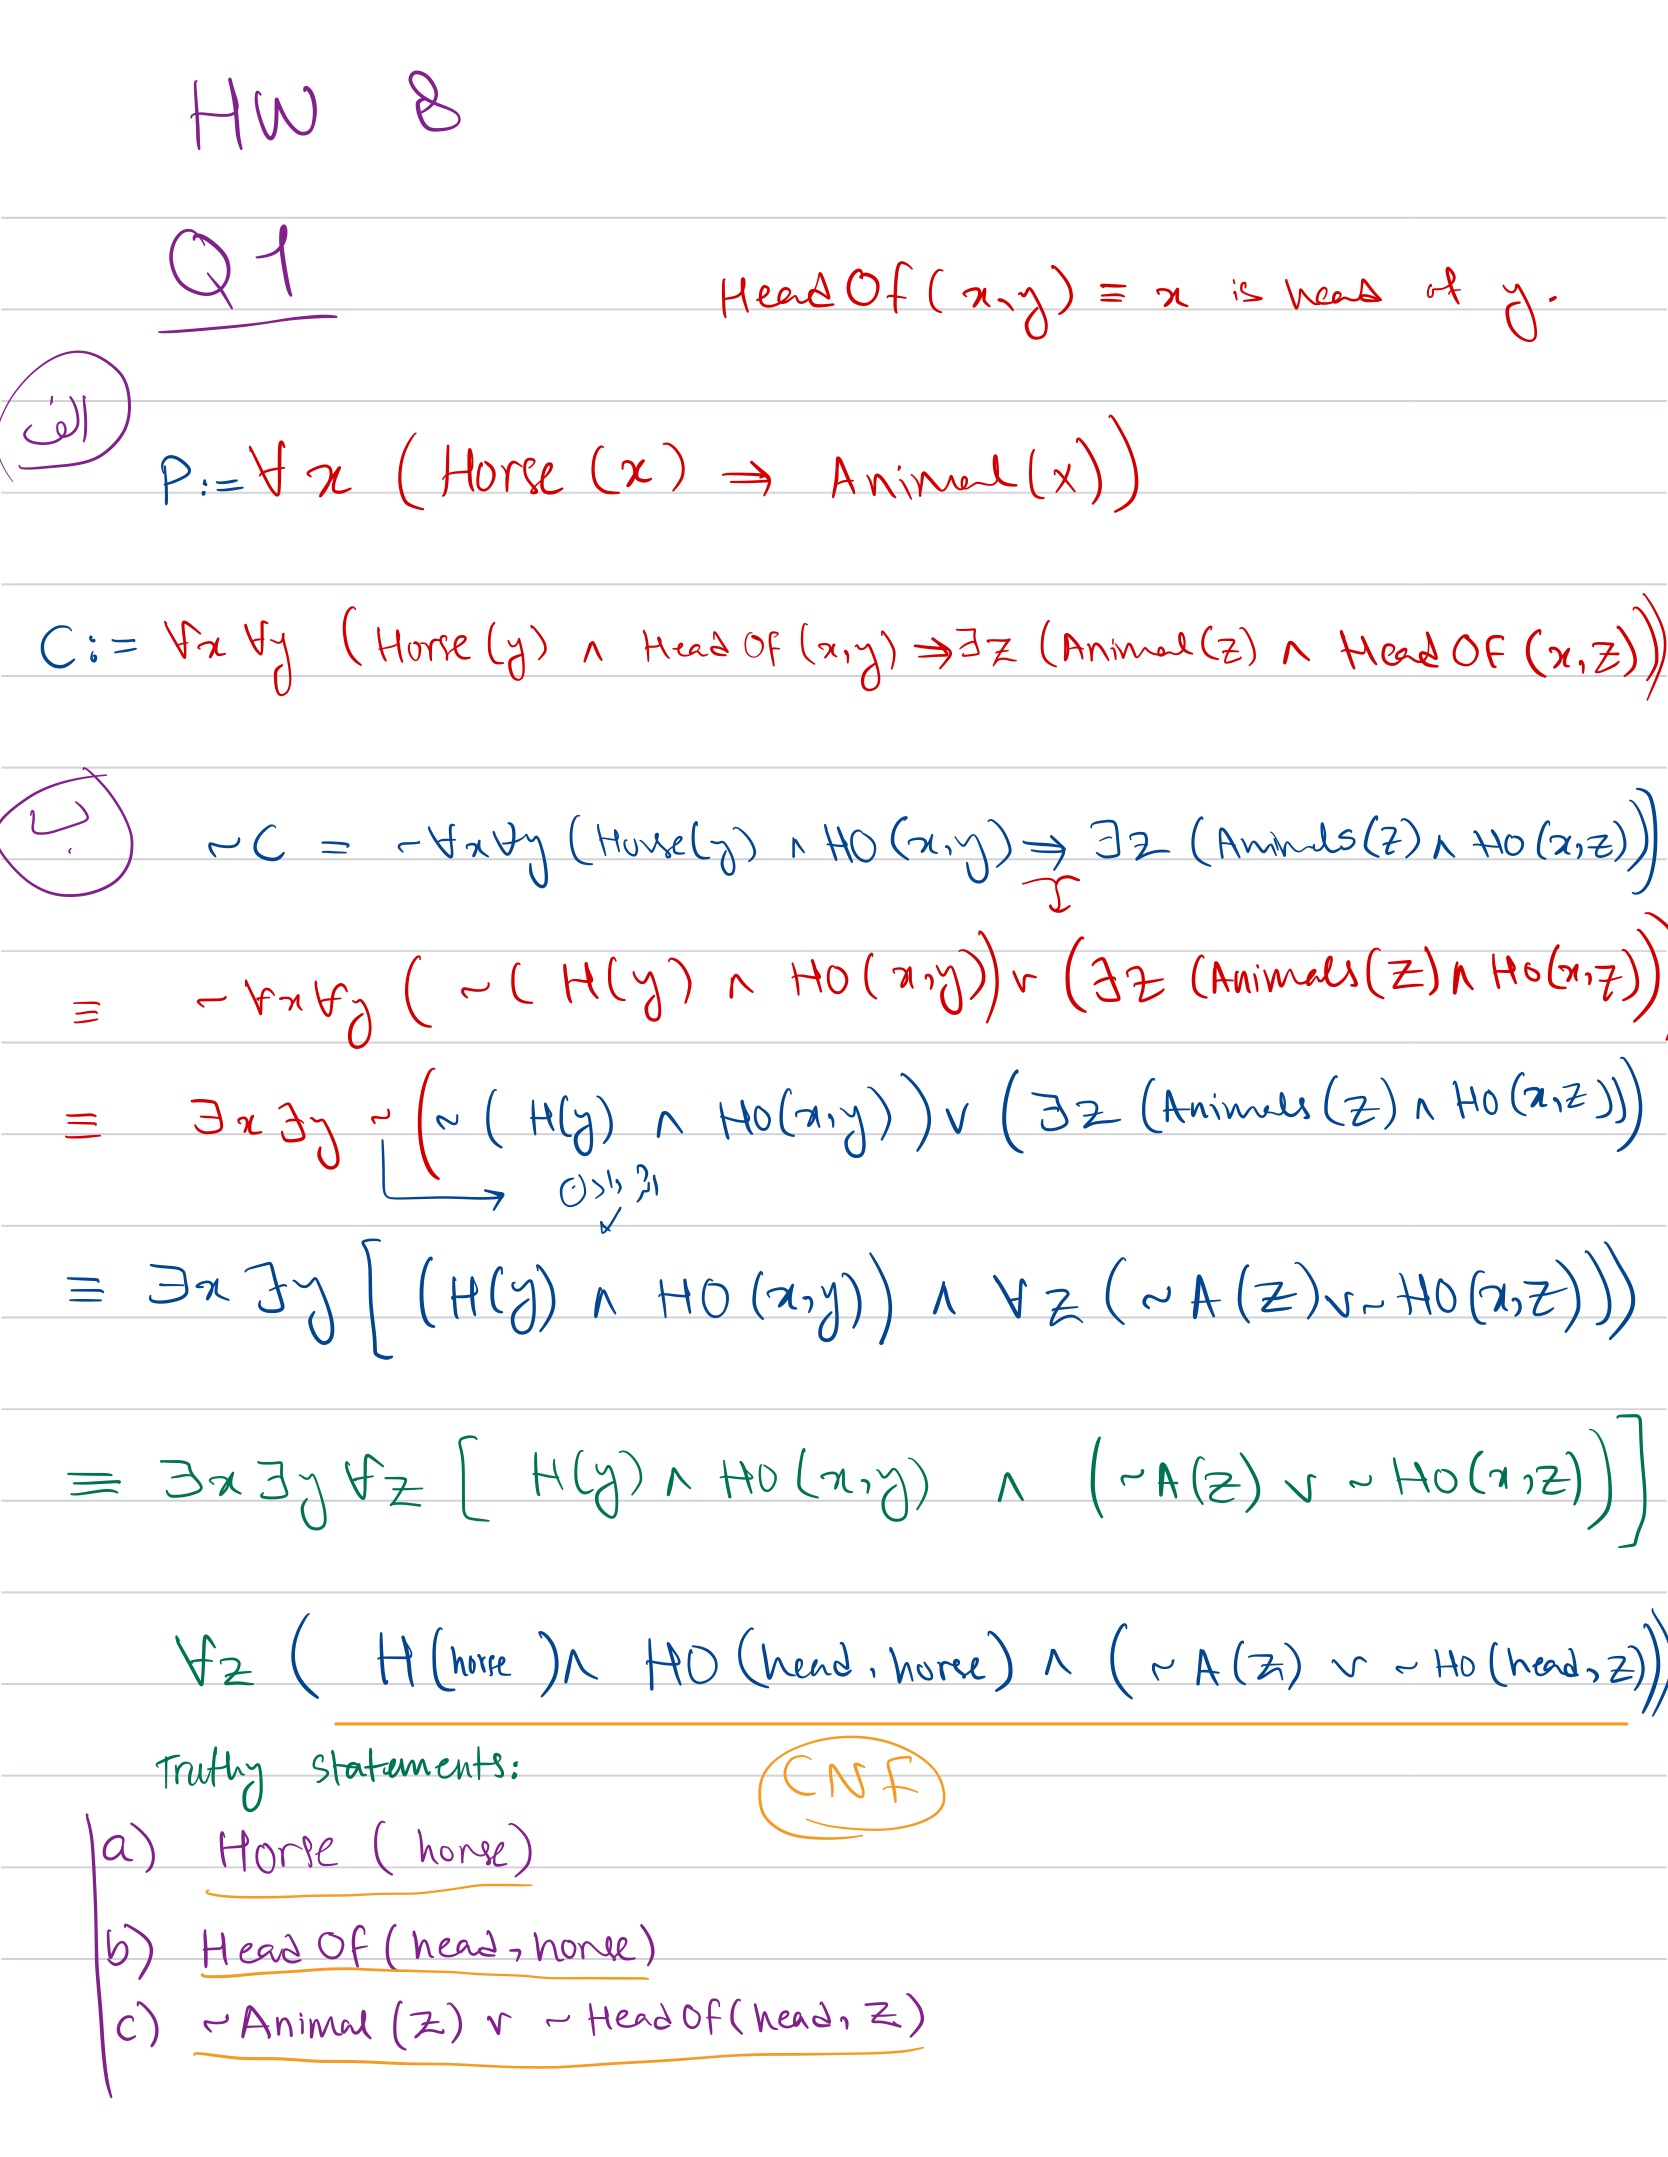 HW 8
Q1
HeadOf(x,y) ≡ x is head of y.
الف
P:= ∀x (Horse(x) ⇒ Animal(x))
C:= ∀x ∀y (Horse(y) ∧ HeadOf(x,y) ⇒ ∃z (Animal(z) ∧ HeadOf(x,z)))
ب
~C = ~∀x∀y (Horse(y) ∧ HO(x,y) ⇒ ∃z (Animals(z) ∧ HO(x,z)))
≡ ~∀x∀y (~(H(y) ∧ HO(x,y)) ∨ (∃z (Animals(z) ∧ HO(x,z))
≡ ∃x ∃y ~(~(H(y) ∧ HO(x,y)) ∨ (∃z (Animals(z) ∧ HO(x,z)))
≡ ∃x ∃y [(H(y) ∧ HO(x,y)) ∧ ∀z (~A(z) ∨ ~HO(x,z)))
≡ ∃x ∃y ∀z [H(y) ∧ HO(x,y) ∧ (~A(z) ∨ ~HO(x,z))]
∀z (H(horse) ∧ HO(head, horse) ∧ (~A(z) ∨ ~HO(head, z)))
Truthy statements:
CNF
a) Horse (horse)
b) HeadOf(head, horse)
c) ~Animal(z) ∨ ~HeadOf(head, z)